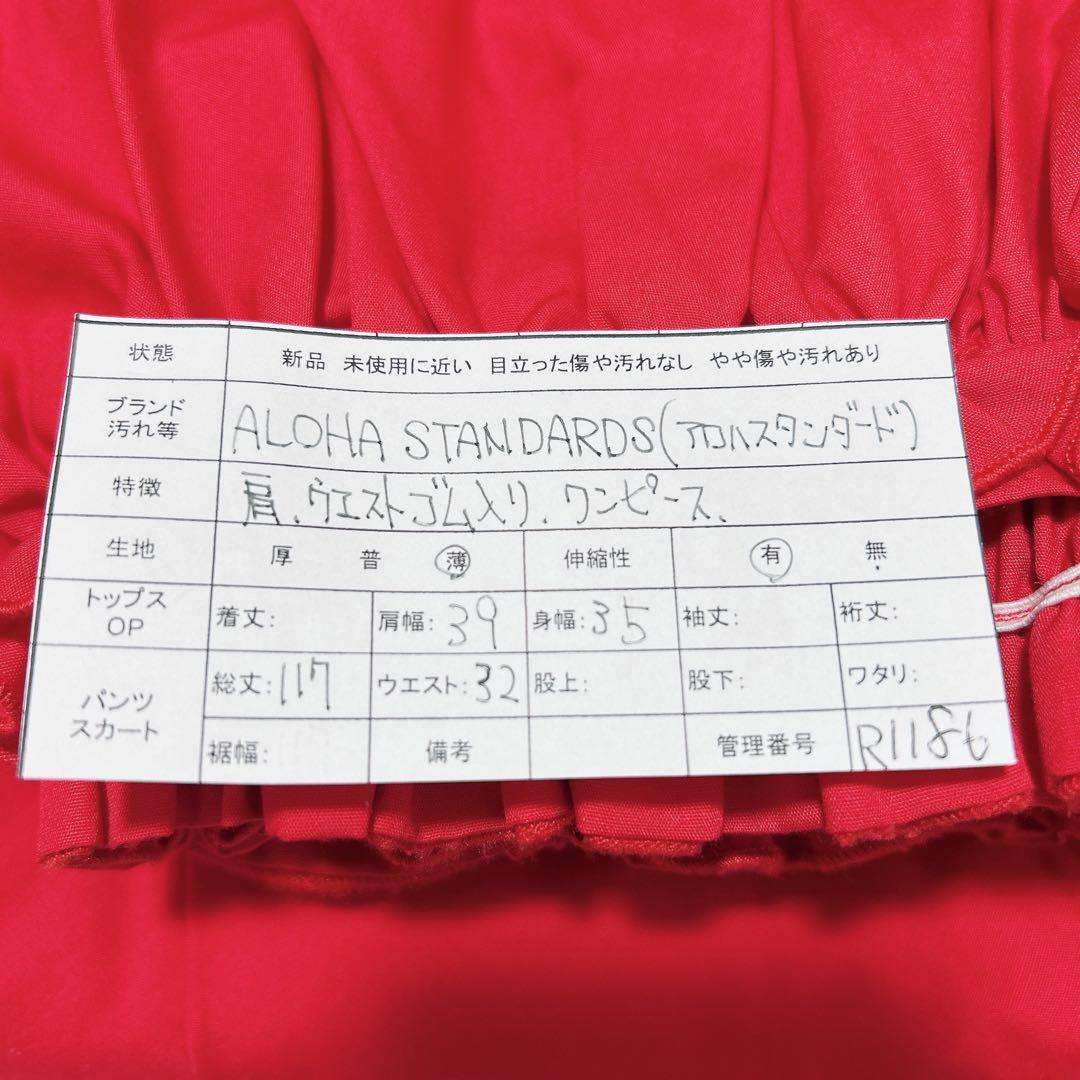 状態 新品 未使用に近い 目立った傷や汚れなし やや傷や汚れあり
ブランド
汚れ等 ALOHA STANDARDS(アロハスタンダード)
特徴 肩、ウエストゴム入り、ワンピース、
生地 厚 普 薄 伸縮性 有 無
トップス
OP 着丈: 肩幅:39 身幅:35 袖丈: 裄丈:
パンツ
スカート 総丈:117 ウエスト:32 股上: 股下: ワタリ:
裾幅: 備考 管理番号 R1186